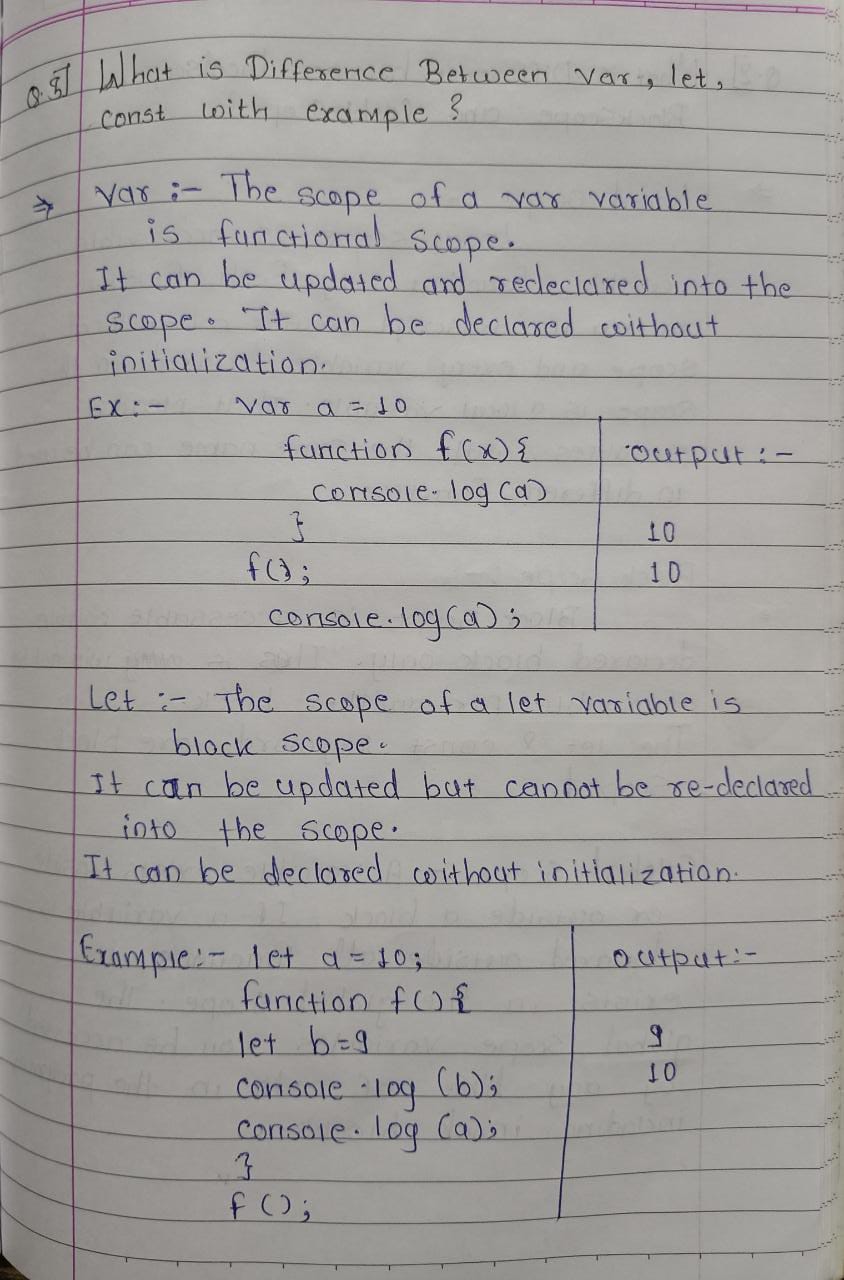 Q.5] What is Difference Between var, let,
const with example ?
⇒ Var :- The scope of a var variable
is functional scope.
It can be updated and redeclared into the
scope. It can be declared without
initialization.
EX :- var a = 10
function f(x){
output :-
console.log(a)
}
10
f();
10
console.log(a);
Let :- The scope of a let variable is
block scope.
It can be updated but cannot be re-declared
into the scope.
It can be declared without initialization.
Example:- let a = 10;
output:-
function f(){
let b=9
9
console.log (b);
10
console.log (a);
}
f();